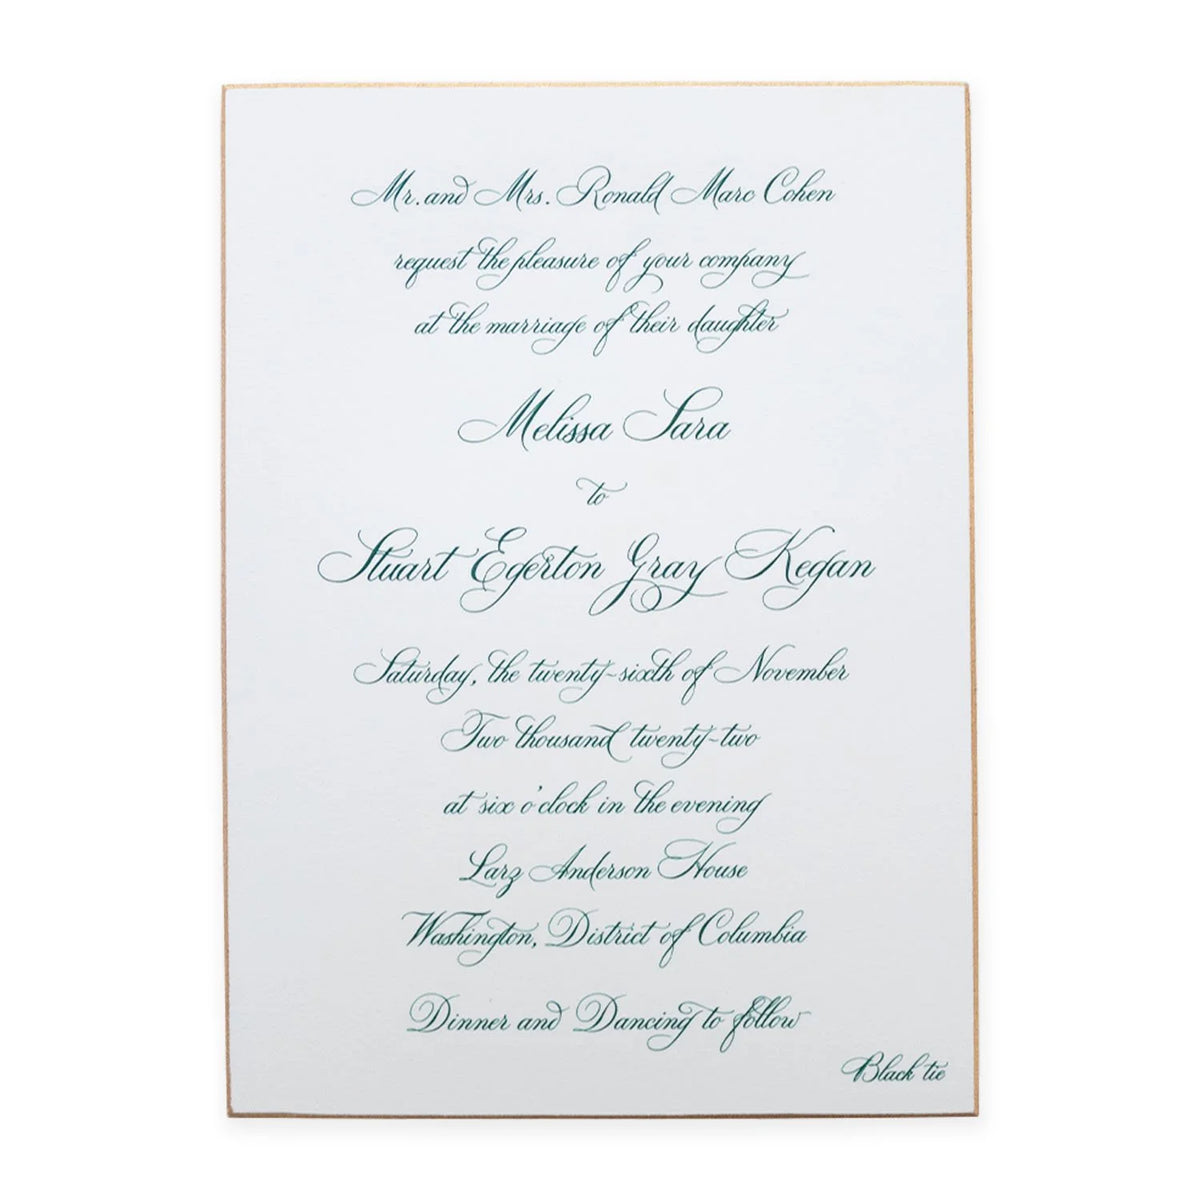 Mr. and Mrs. Ronald Marc Cohen
request the pleasure of your company
at the marriage of their daughter
Melissa Sara
to
Stuart Egerton Gray Kegan
Saturday, the twenty-sixth of November
Two thousand twenty-two
at six o'clock in the evening
Larz Anderson House
Washington, District of Columbia
Dinner and Dancing to follow
Black tie